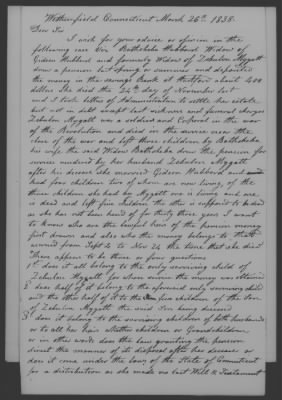 Wethersfield, Connecticut March 26th, 1838.
Dear Sir
I wish for your advice or opinion in the
following case Viz. Bathsheba Hubbard Widow of
Gideon Hubbard and formerly Widow of Zebulon Mygatt
drew a pension last spring or summer and deposited
the money in the savings Bank at Hartford about 400
dollars She died the 24th day of November last
and I took letters of Administration to settle her estate
but not in debt except last sickness and funeral charges
Zebulon Mygatt was a soldier and Corporal in the war
of the Revolution and died in the service near the
close of the war and left three children by Bathsheba
his wife, the said Widow Bathsheba drew the pension for
service rendered by her husband Zebulon Mygatt
after his decease she married Gideon Hubbard and
had four children two of whom are now living, of the
three children she had by Mygatt one is living and one
is dead and left five children the other is supposed to be dead
as she has not been heard of for thirty three years I want
to know who are the lawful heirs of the pension money
first drawn and also who the money belongs to that
accrued from Sept 4 to Nov 24 the time that she died
There appears to be three or four questions
1st does it all belong to the only surviving child of
Zebulon Mygatt for whose service the money was obtained
2 does half of it belong to the aforesaid only surviving child
and the other half of it to the five children of the Son
of Zebulon Mygatt the said Son being deceased
3d does it belong to the surviving children of both husbands
or to all her heirs whether children or Grandchildren
or in other words does the law granting the pension
direct the manner of its disposal after her decease or
does it come under the laws of the State of Connecticut
for a distribution as she made no last Will & Testament